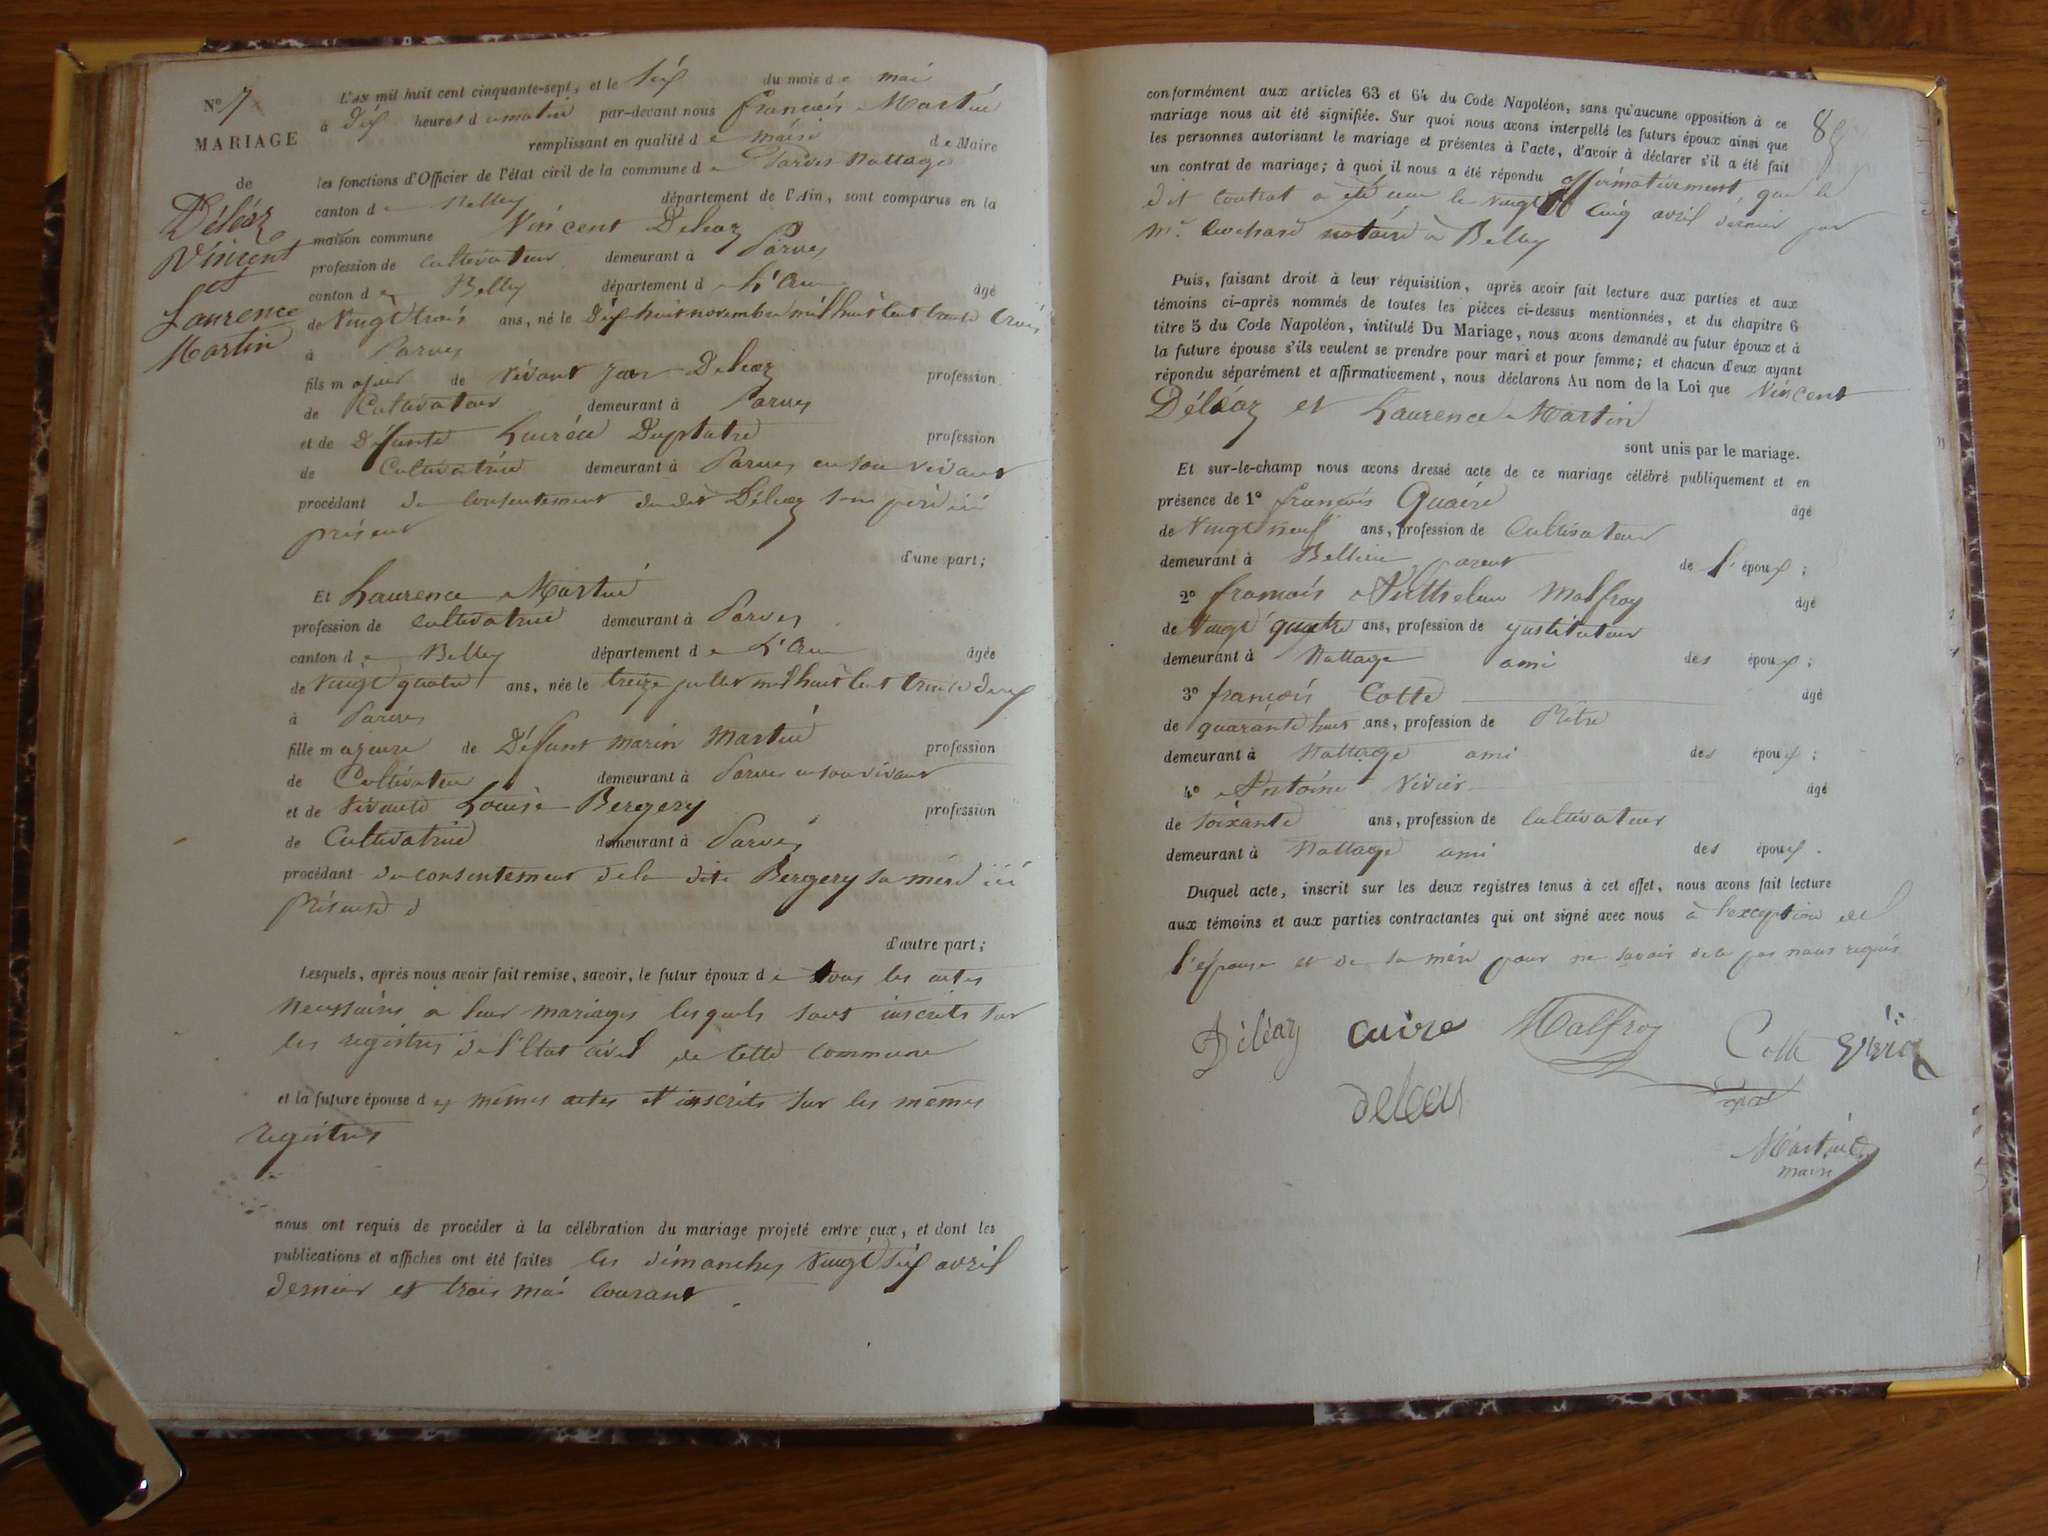 N° 7
MARIAGE
de
Déléaz
Vincent
et
Laurence
Martin
L'an mil huit cent cinquante-sept, et le six du mois de mai
à dix heures du matin par-devant nous françois Martin
remplissant en qualité de maire de Maire
les fonctions d'Officier de l'état civil de la commune de Parves Nattage
canton de Belley département de l'Ain, sont comparus en la
maison commune Vincent Deléaz
profession de cultivateur demeurant à Parves
canton de Belley département de L'Ain âgé
de vingt trois ans, né le dix huit novembre mil huit cent trente trois
à Parves
fils majeur de vivant Jean Deléaz profession
de Cultivateur demeurant à Parves
et de Défunte Lucrèce Duplatre profession
de Cultivatrice demeurant à Parves en son vivant
procédant du consentement du dit Déléaz son père ici
présent
d'une part;
Et Laurence Martin
profession de cultivatrice demeurant à Parves
canton de Belley département de L'Ain âgée
de vingt quatre ans, née le treize juillet mil huit cent trente deux
à Parves
fille majeure de Défunt marin Martin profession
de Cultivateur demeurant à Parves en son vivant
et de vivante Louise Bergery profession
de Cultivatrice demeurant à Parves
procédant du consentement de la dite Bergery sa mère ici
Présente
d'autre part;
Lesquels, après nous avoir fait remise, savoir, le futur époux de tous les actes
necessaires a leur mariages lesquels sont inscrits sur
les registres de l'Etat civil de cette commune
et la future épouse des memes actes et inscrits sur les mêmes
registres
nous ont requis de procéder à la célébration du mariage projeté entre eux, et dont les
publications et affiches ont été faites les dimanches vingt six avril
dernier et trois mai courant.
85
conformément aux articles 63 et 64 du Code Napoléon, sans qu'aucune opposition à ce
mariage nous ait été signifiée. Sur quoi nous avons interpellé les futurs époux ainsi que
les personnes autorisant le mariage et présentes à l'acte, d'avoir à déclarer s'il a été fait
un contrat de mariage; à quoi il nous a été répondu affirmativement, que le
dit contrat a été reçu le vingt cinq avril dernier par
Mr notaire à Belley
Puis, faisant droit à leur réquisition, après avoir fait lecture aux parties et aux
témoins ci-après nommés de toutes les pièces ci-dessus mentionnées, et du chapitre 6
titre 5 du Code Napoléon, intitulé Du Mariage, nous avons demandé au futur époux et à
la future épouse s'ils veulent se prendre pour mari et pour femme; et chacun d'eux ayant
répondu séparément et affirmativement, nous déclarons Au nom de la Loi que Vincent
Déléaz et Laurence Martin
sont unis par le mariage.
Et sur-le-champ nous avons dressé acte de ce mariage célébré publiquement et en
présence de 1° françois Quaire âgé
de vingt neuf ans, profession de Cultivateur
demeurant à parent de l'époux;
2° francois Anthelme Malfroy âgé
de vingt quatre ans, profession de instituteur
demeurant à Nattage ami des époux;
3° françois Cotte âgé
de quarante huit ans, profession de Prêtre
demeurant à Nattage ami des époux;
4° Antoine Vivier âgé
de soixante ans, profession de cultivateur
demeurant à Nattage ami des époux.
Duquel acte, inscrit sur les deux registres tenus à cet effet, nous avons fait lecture
aux témoins et aux parties contractantes qui ont signé avec nous à l'exception de
l'epouse et de sa mère pour ne savoir de ce par nous requis
Déléaz cuire Malfroy Cotte
deleas
Martin
maire